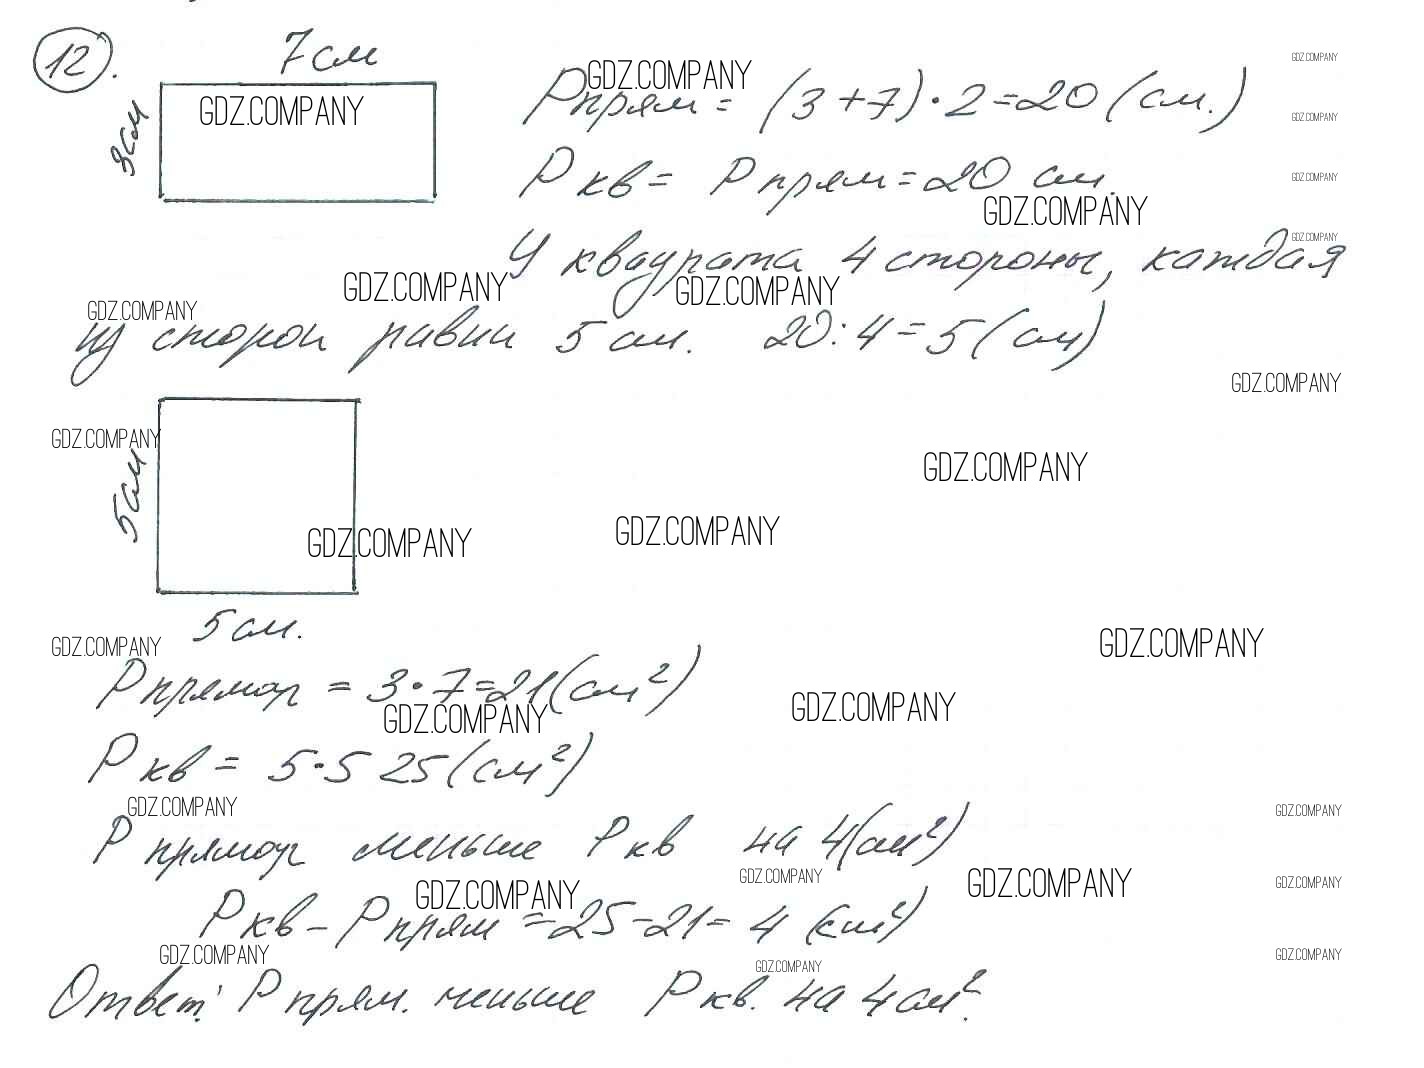 12.
7см
GDZ.COMPANY
3см
GDZ.COMPANY
Pпрям = (3+7)·2=20 (см.)
GDZ.COMPANY
GDZ.COMPANY
P кв = P прям = 20 см.
GDZ.COMPANY
GDZ.COMPANY
У квадрата 4 стороны, каждая
GDZ.COMPANY
GDZ.COMPANY
GDZ.COMPANY
GDZ.COMPANY
из сторон равна 5 см. 20:4=5(см)
GDZ.COMPANY
GDZ.COMPANY
5см
GDZ.COMPANY
GDZ.COMPANY
GDZ.COMPANY
5 см.
GDZ.COMPANY
GDZ.COMPANY
P прямоуг = 3·7=21(см²)
GDZ.COMPANY
GDZ.COMPANY
P кв = 5·5 25(см²)
GDZ.COMPANY
GDZ.COMPANY
P прямоуг меньше P кв на 4(см²)
GDZ.COMPANY
GDZ.COMPANY
GDZ.COMPANY
GDZ.COMPANY
P кв – P прям = 25-21= 4 (см²)
GDZ.COMPANY
GDZ.COMPANY
GDZ.COMPANY
Ответ: P прям. меньше P кв. на 4 см².